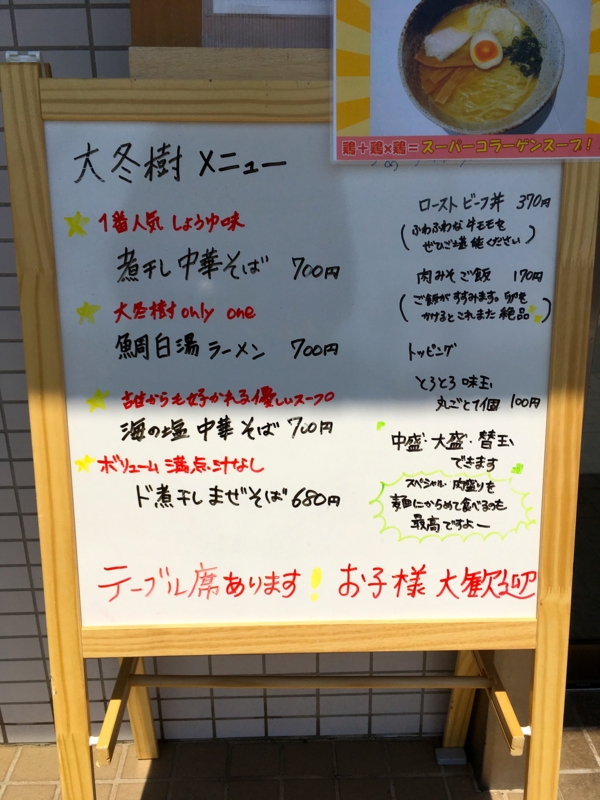 鶏+鶏×鶏=スーパーコラーゲンスープ!
大冬樹 メニュー
1番人気 しょうゆ味
煮干し中華そば 700円
大冬樹 only one
鯛白湯 ラーメン 700円
誰からも好かれる優しいスープ
海の塩 中華そば 700円
ボリューム満点汁なし
ド煮干し まぜそば 680円
ローストビーフ丼 370円
(ふわふわな 牛モモを
ぜひご堪能ください)
肉みそご飯 170円
(ご飯がすすみます。卵を
かけるとこれまた 絶品)
トッピング
とろとろ 味玉
丸ごと1個 100円
中盛・大盛・替玉
できます
スペシャル 肉盛りを
麺にからめて食べるのも
最高ですよー
テーブル席あります! お子様 大歓迎